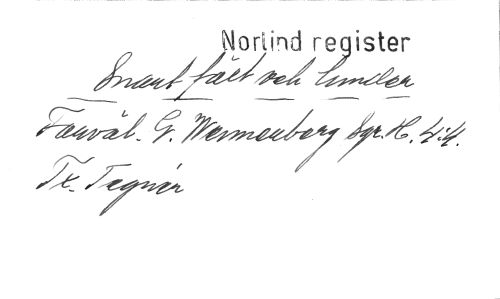 Norlind register
Snart fält och lunder
Farväl. G. Wennerberg Sgr. H. 4:4.
Tx. Tegnér